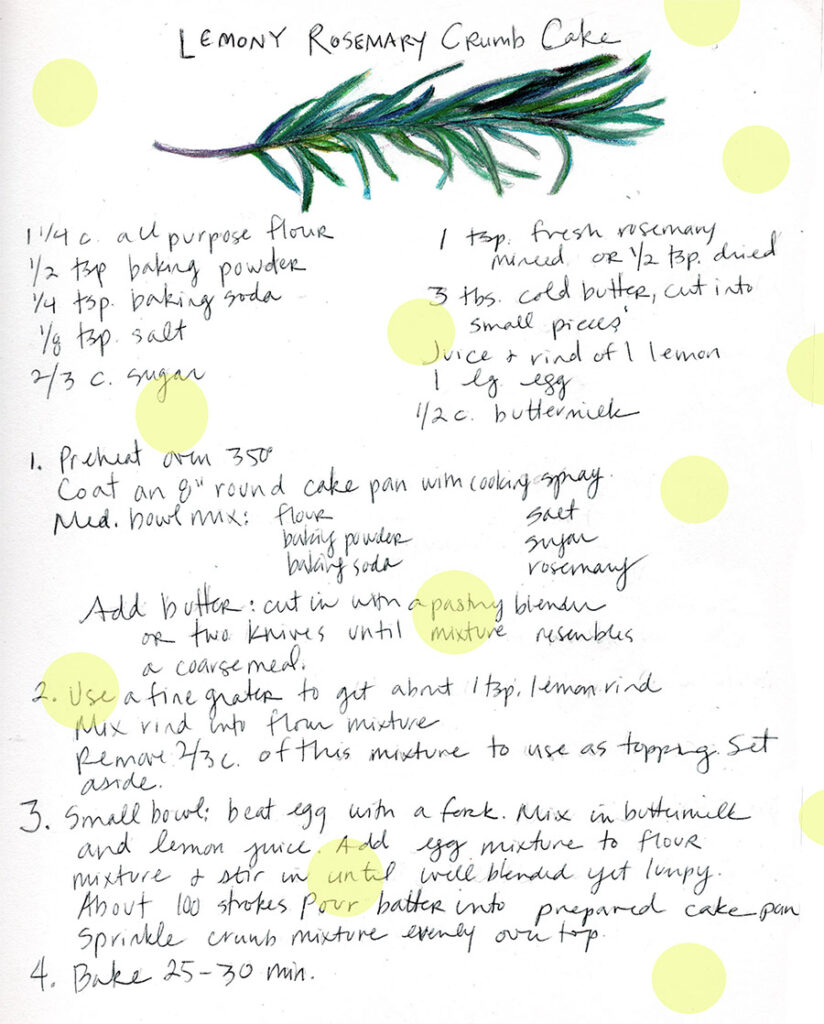 LEMONY ROSEMARY CRUMB CAKE
1 1/4 c. all purpose flour
1/2 tsp baking powder
1/4 tsp. baking soda
1/8 tsp. salt
2/3 c. sugar
1 tsp. fresh rosemary
minced or 1/2 tsp. dried
3 tbs. cold butter, cut into
small pieces
Juice + rind of 1 lemon
1 lg. egg
1/2 c. buttermilk
1. Preheat oven 350°
Coat an 8" round cake pan with cooking spray.
Med. bowl mix: flour salt
baking powder sugar
baking soda rosemary
Add butter: cut in with a pastry blender
or two knives until mixture resembles
a coarse meal.
2. Use a fine grater to get about 1 tsp. lemon rind
Mix rind into flour mixture
Remove 2/3 c. of this mixture to use as topping. Set
aside.
3. Small bowl: beat egg with a fork. Mix in buttermilk
and lemon juice. Add egg mixture to flour
mixture + stir in until well blended yet lumpy.
About 100 strokes Pour batter into prepared cake pan
Sprinkle crumb mixture evenly over top.
4. Bake 25-30 min.